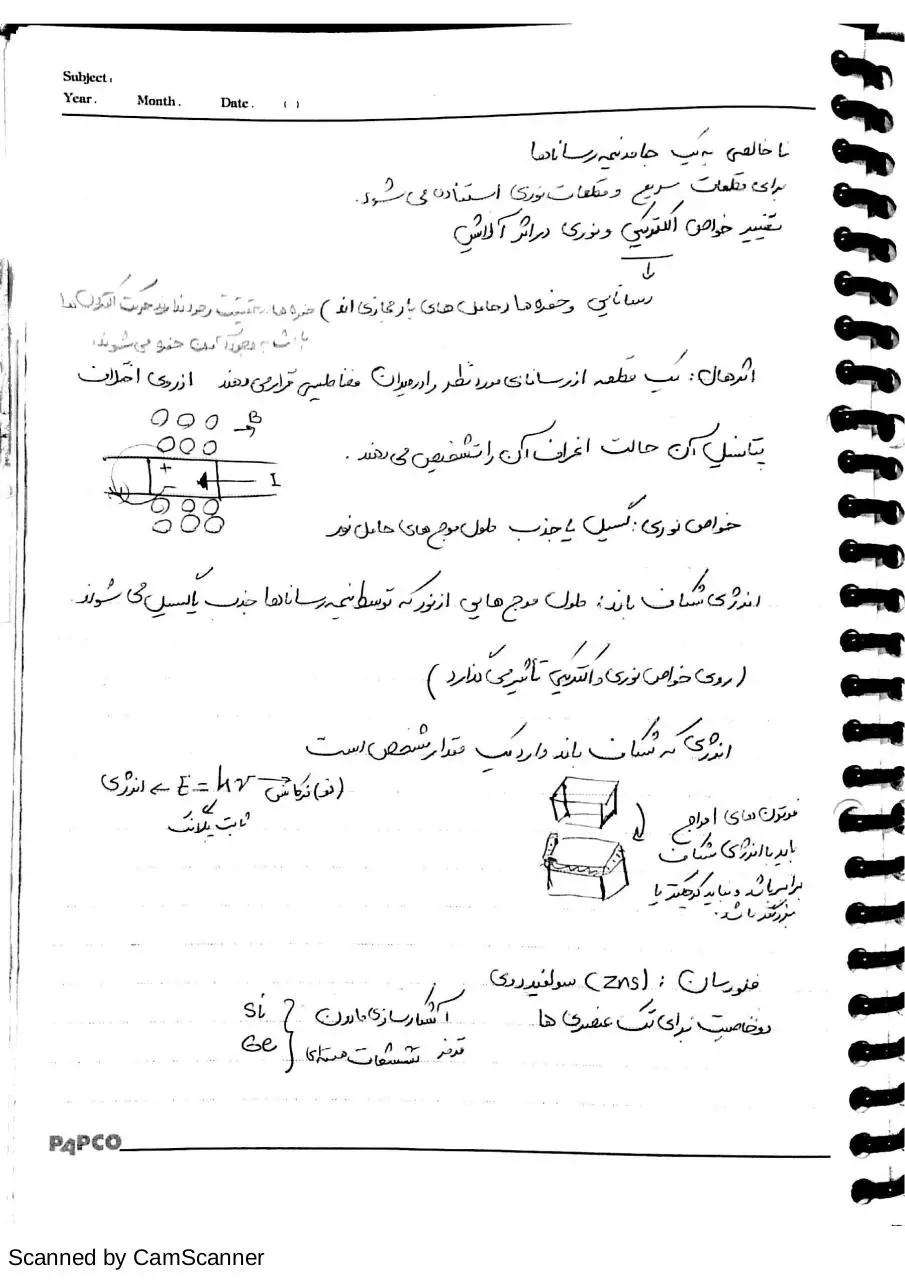 Subject:
Year. Month. Date. ( )
ناخالصی به یک جامد نیمه رساناها
برای قطعات سریع و قطعات نوری استفاده می شود.
تغییر خواص الکتریکی و نوری در اثر آلایش
رسانایی و حفره ها (حامل های بار مجازی اند) حفره ها در حقیقت وجود ندارند حرکت الکترون ها
باعث به وجود آمدن حفره می شوند.
اثر هال: یک قطعه از رسانای مورد نظر را در میدان مغناطیسی قرار می دهند از روی اختلاف
پتانسیل آن حالت انحراف آن را تشخیص می دهند.
B
+
-
I
خواص نوری: گسیل یا جذب طول موج های حامل نور
انرژی شکاف باند: طول موج هایی از نور که توسط نیمه رساناها جذب یا گسیل می شوند
(روی خواص نوری و الکتریکی تأثیر می گذارد)
انرژی که شکاف باند دارد یک مقدار مشخص است
انرژی ← E = hν → فرکانس (نو)
ثابت پلانک
فوتون های امواج
باید با انرژی شکاف
برابر باشد و نباید کوچکتر یا
بزرگتر باشد.
فلورسان: (ZnS) سولفید روی
دو خاصیت برای تک عنصری ها
آشکارسازی مادون قرمز
تشعشعات هسته ای
Si
Ge
PAPCO
Scanned by CamScanner